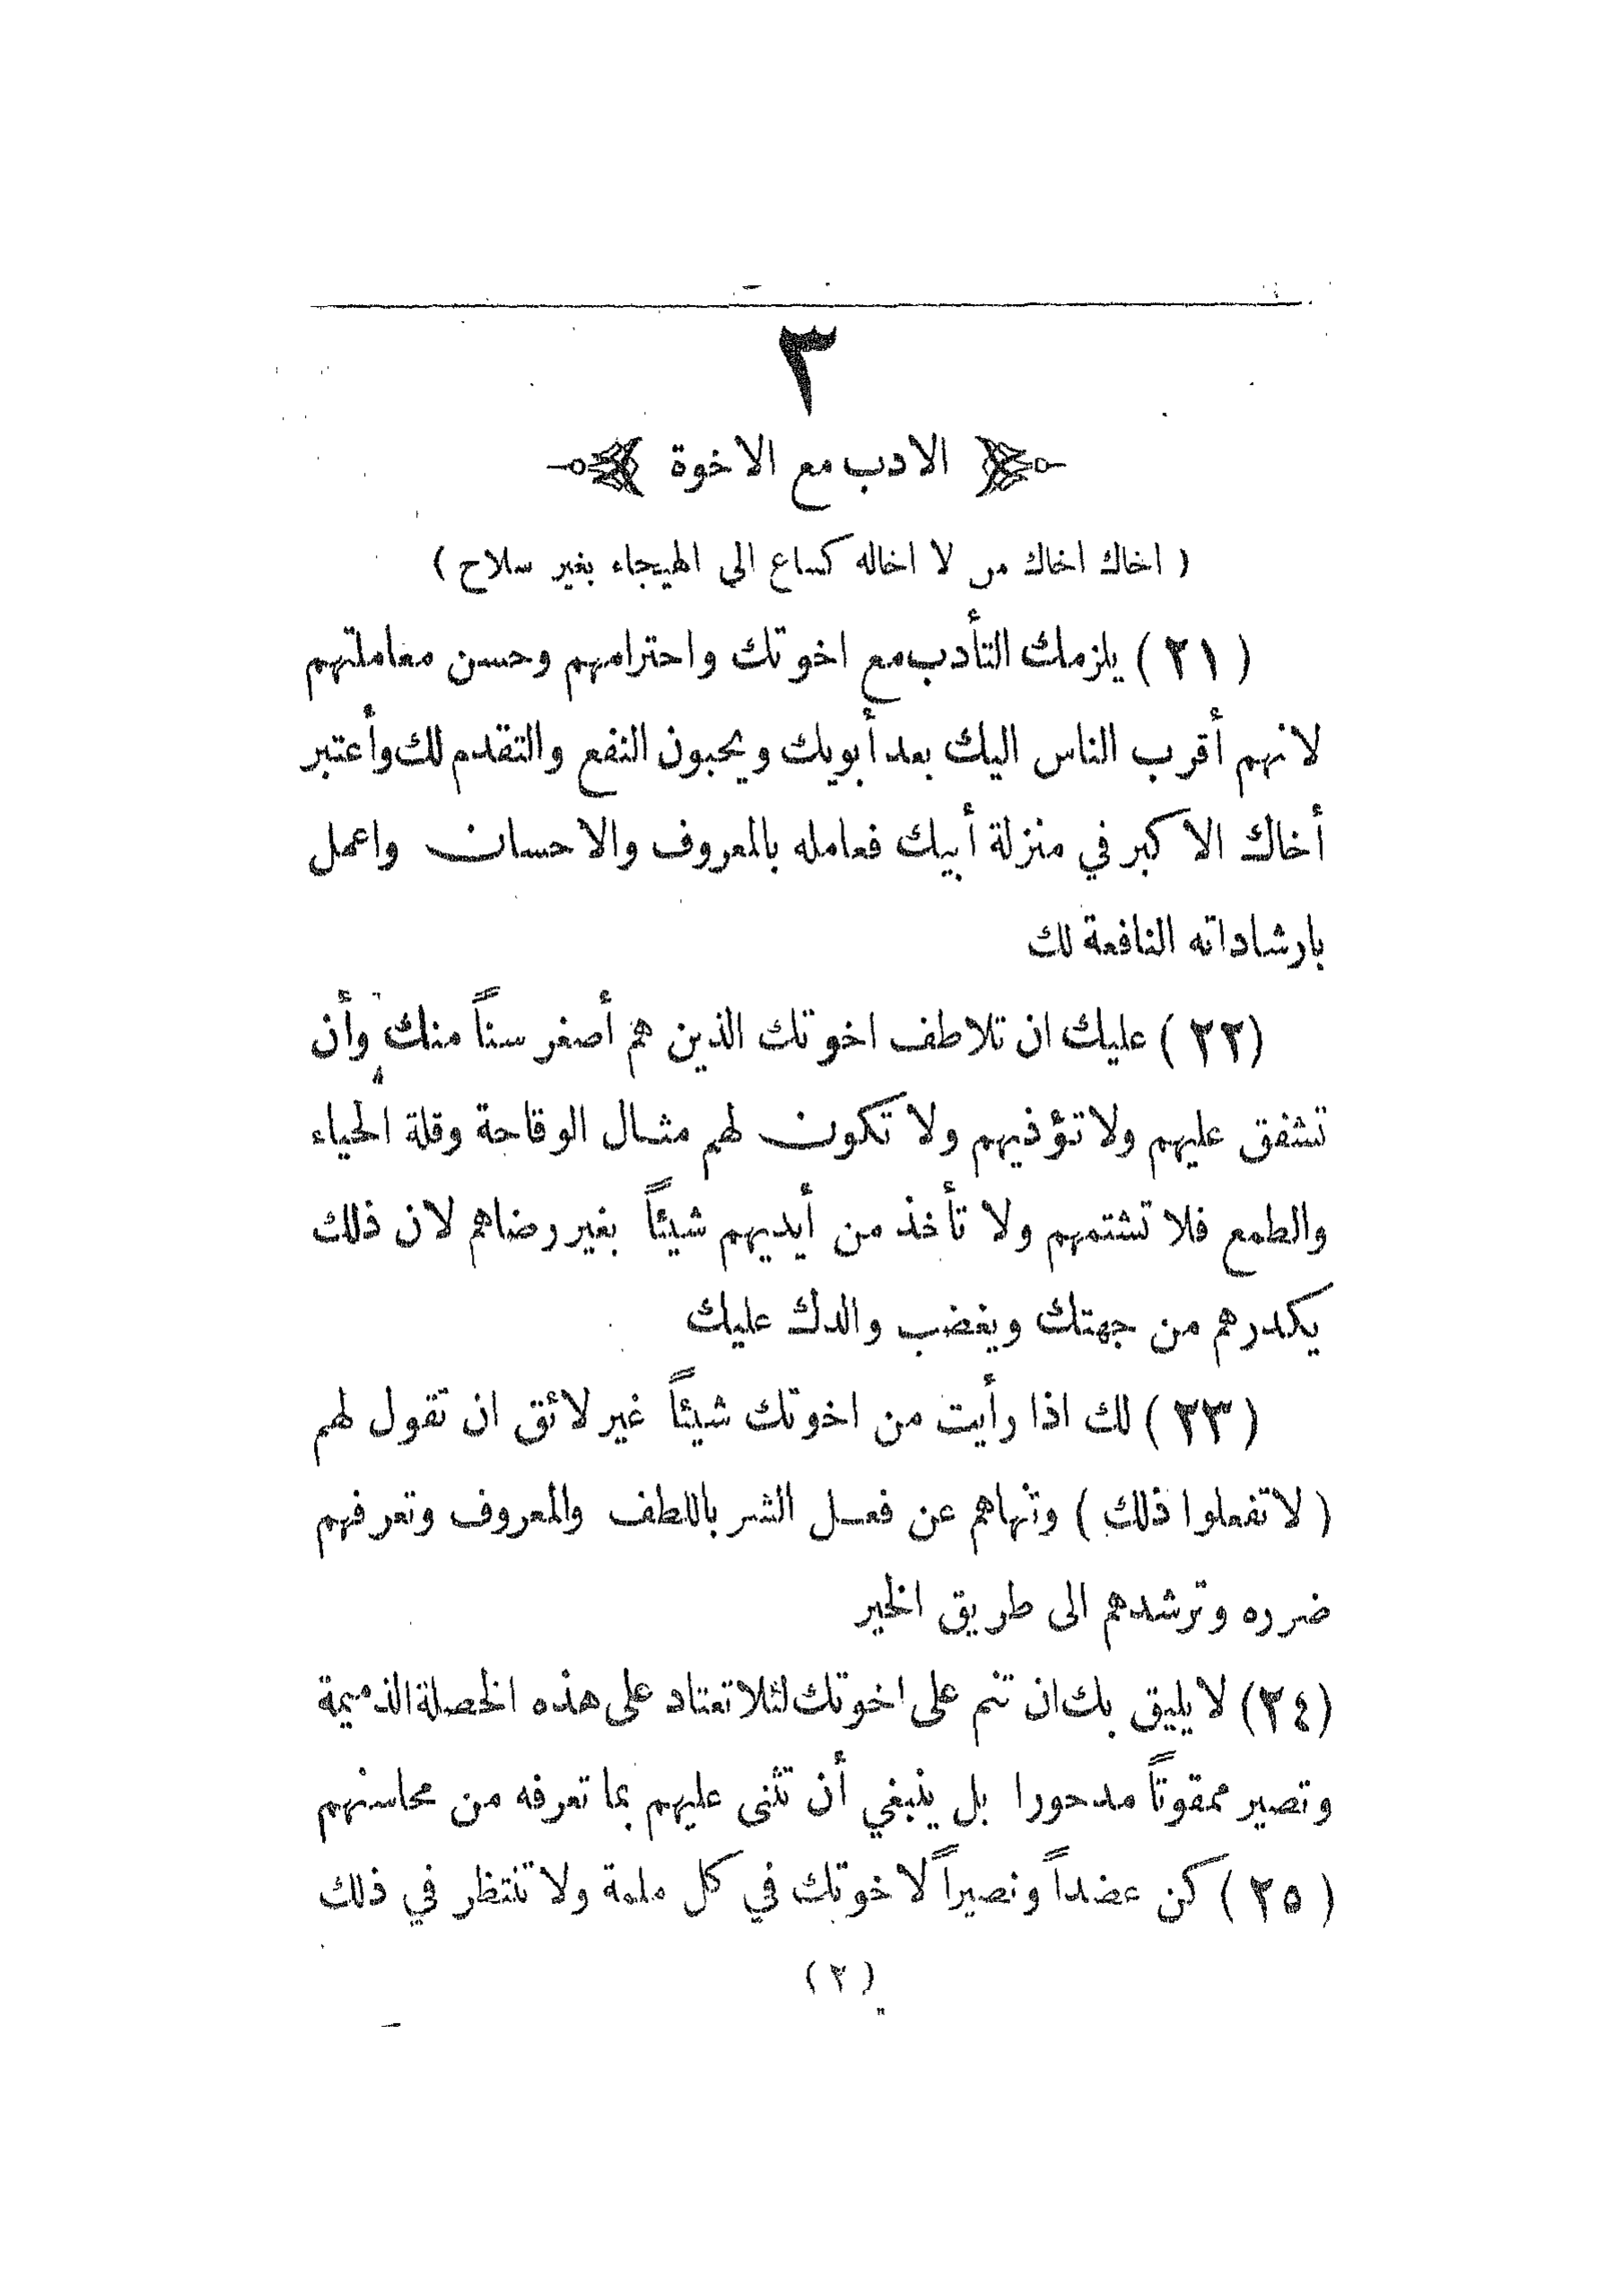 ٣
الادب مع الاخوة
( اخاك اخاك من لا اخاله كساع الى الهيجاء بغير سلاح )
( ٢١ ) يلزمك التأدب مع اخوتك واحترامهم وحسن معاملتهم
لانهم أقرب الناس اليك بعد أبويك ويحبون النفع والتقدم لك وأعتبر
أخاك الاكبر في منزلة أبيك فعامله بالمعروف والاحسان واعمل
بارشاداته النافعة لك
( ٢٢ ) عليك ان تلاطف اخوتك الذين هم أصغر سناً منك وأن
تشفق عليهم ولا تؤذيهم ولا تكون لهم مثال الوقاحة وقلة الحياء
والطمع فلا تشتمهم ولا تأخذ من أيديهم شيئاً بغير رضاهم لان ذلك
يكدرهم من جهتك ويغضب والدك عليك
( ٢٣ ) لك اذا رأيت من اخوتك شيئاً غير لائق ان تقول لهم
( لا تفعلوا ذلك ) وتنهاهم عن فعل الشر باللطف والمعروف وتعرفهم
ضرره وترشدهم الى طريق الخير
(٢٤) لا يليق بك ان تنم على اخوتك لئلا تعتاد على هذه الخصلة الذميمة
وتصير ممقوتاً مدحورا بل ينبغي أن تثنى عليهم بما تعرفه من محاسنهم
( ٢٥ ) كن عضداً ونصيراً لاخوتك في كل ملمة ولا تنتظر في ذلك
( ٢ )